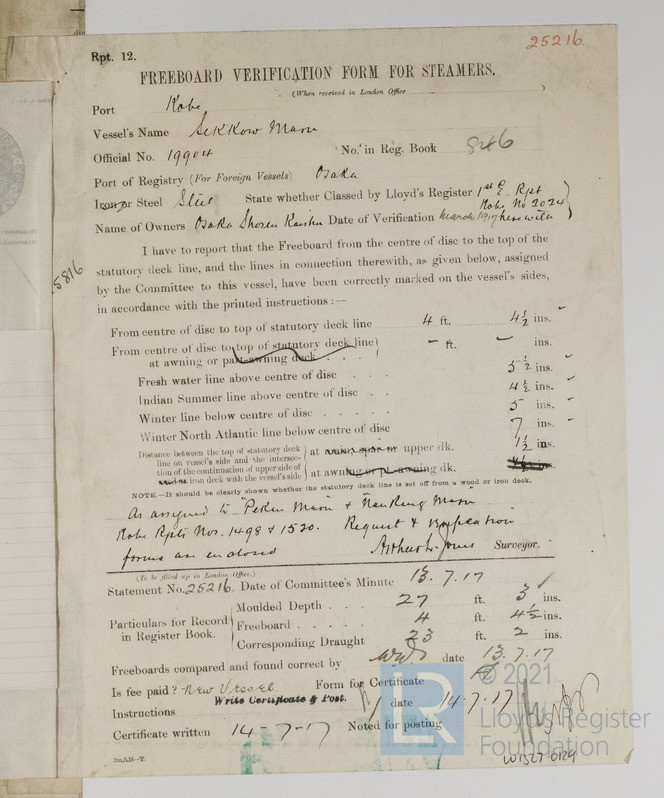 Rpt. 12.
25216.
FREEBOARD VERIFICATION FORM FOR STEAMERS.
(When received in London Office )
Port Kobe
Vessel's Name Sekkow Maru
Official No. 19904 No. in Reg. Book 846
Port of Registry (For Foreign Vessels) Osaka
Iron or Steel Steel State whether Classed by Lloyd's Register 1st E. Rpt
Kobe No 2024
Name of Owners Osaka Shosen Kaisha Date of Verification March 1917 herewith
I have to report that the Freeboard from the centre of disc to the top of the
statutory deck line, and the lines in connection therewith, as given below, assigned
by the Committee to this vessel, have been correctly marked on the vessel's sides,
in accordance with the printed instructions :—
5816
From centre of disc to top of statutory deck line 4 ft. 4½ ins.
From centre of disc to top of statutory deck line
at awning or part-awning deck . . . . – ft. – ins.
Fresh water line above centre of disc . . . 5½ ins.
Indian Summer line above centre of disc . . 4½ ins.
Winter line below centre of disc . . . . . 5 ins.
Winter North Atlantic line below centre of disc 7 ins.
Distance between the top of statutory deck
line on vessel's side and the intersec-
tion of the continuation of upper side of
wood or iron deck with the vessel's side
at main, spar or upper dk. 1½ ins.
at awning or pt.-awning dk. ins.
NOTE.—It should be clearly shown whether the statutory deck line is set off from a wood or iron deck.
As assigned to "Pekin Maru & Nanking Maru
Kobe Rpts Nos. 1498 & 1520. Request & Verification
forms are enclosed
Arthur L. Jones Surveyor.
(To be filled up in London Office.)
Statement No. 25216. Date of Committee's Minute 13.7.17
Particulars for Record
in Register Book.
Moulded Depth . . . 27 ft. 3 ins.
Freeboard . . . . . 4 ft. 4½ ins.
Corresponding Draught 23 ft. 2 ins.
Freeboards compared and found correct by date 13.7.17
Is fee paid? New Vessel. Form for Certificate
Instructions Write Certificate & Post. date 14.7.17
Certificate written 14-7-17 Noted for posting
2m,5,15—T.
W1527-0129
LR
© 2021
Lloyd's Register
Foundation